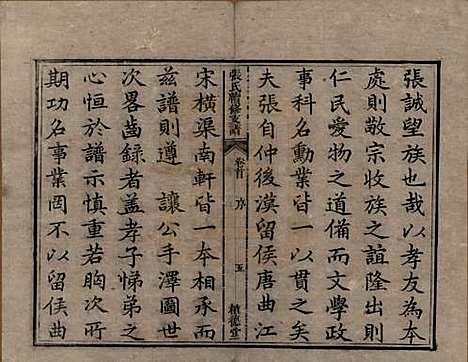 張誠望族也哉以孝友為本
處則敬宗收族之誼隆出則
仁民愛物之道備而文學政
事科名勳業皆一以貫之矣
夫張自仲後漢留侯唐曲江
張氏暫修支譜 卷首 序 五 積德堂
宋橫渠南軒皆一本相承而
茲譜則遵 讓公手澤圖世
次畧齒錄者蓋孝子悌弟之
心恒於譜示慎重若胸次所
期功名事業罔不以留侯曲